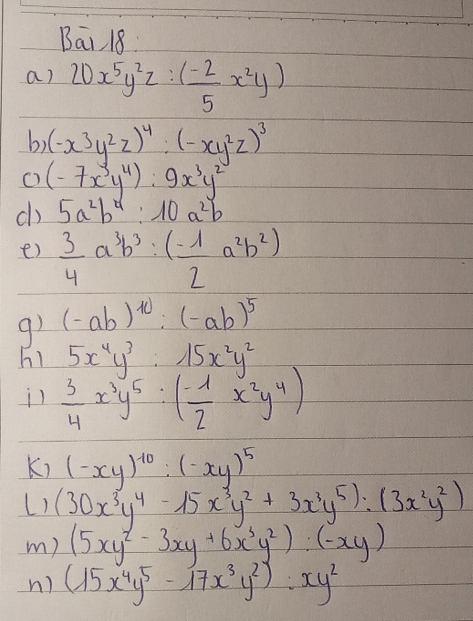 Bài 18:
a) 20x⁵y²z : (-2/5 x²y)
b) (-x³y²z)⁴ : (-xy²z)³
c) (-7x³y⁴) : 9x³y²
d) 5a²b⁴ : 10a²b
e) 3/4 a³b³ : (-1/2 a²b²)
g) (-ab)¹⁰ : (-ab)⁵
h) 5x⁴y³ : 15x²y²
i) 3/4 x³y⁵ : (-1/2 x²y⁴)
k) (-xy)¹⁰ : (-xy)⁵
l) (30x³y⁴ - 15x³y² + 3x³y⁵) : (3x²y²)
m) (5xy² - 3xy + 6x³y²) : (-xy)
n) (15x⁴y⁵ - 17x³y²) : xy²